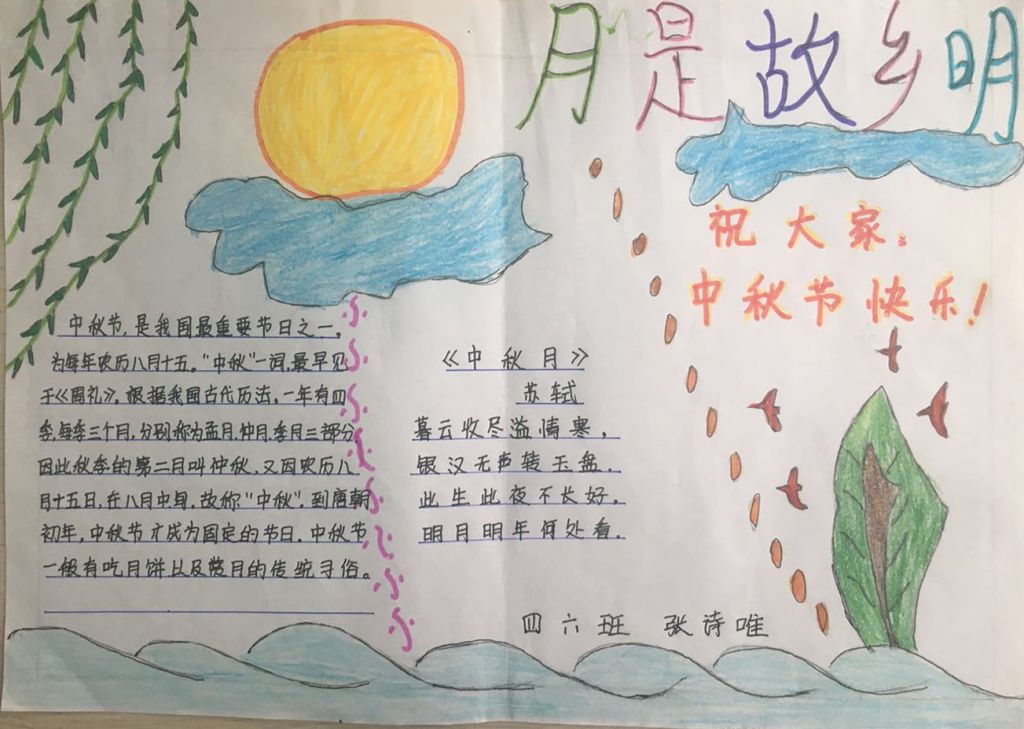 月是故乡明
祝大家：
中秋节快乐！
中秋节，是我国最重要节日之一，
为每年农历八月十五。“中秋”一词，最早见
于《周礼》。根据我国古代历法，一年有四
季，每季三个月，分别称为孟月、仲月、季月三部分，
因此秋季的第二月叫仲秋，又因农历八
月十五日，在八月中旬，故称“中秋”。到唐朝
初年，中秋节才成为固定的节日。中秋节
一般有吃月饼以及赏月的传统习俗。
《中秋月》
苏轼
暮云收尽溢情寒，
银汉无声转玉盘。
此生此夜不长好，
明月明年何处看。
四六班 张诗唯